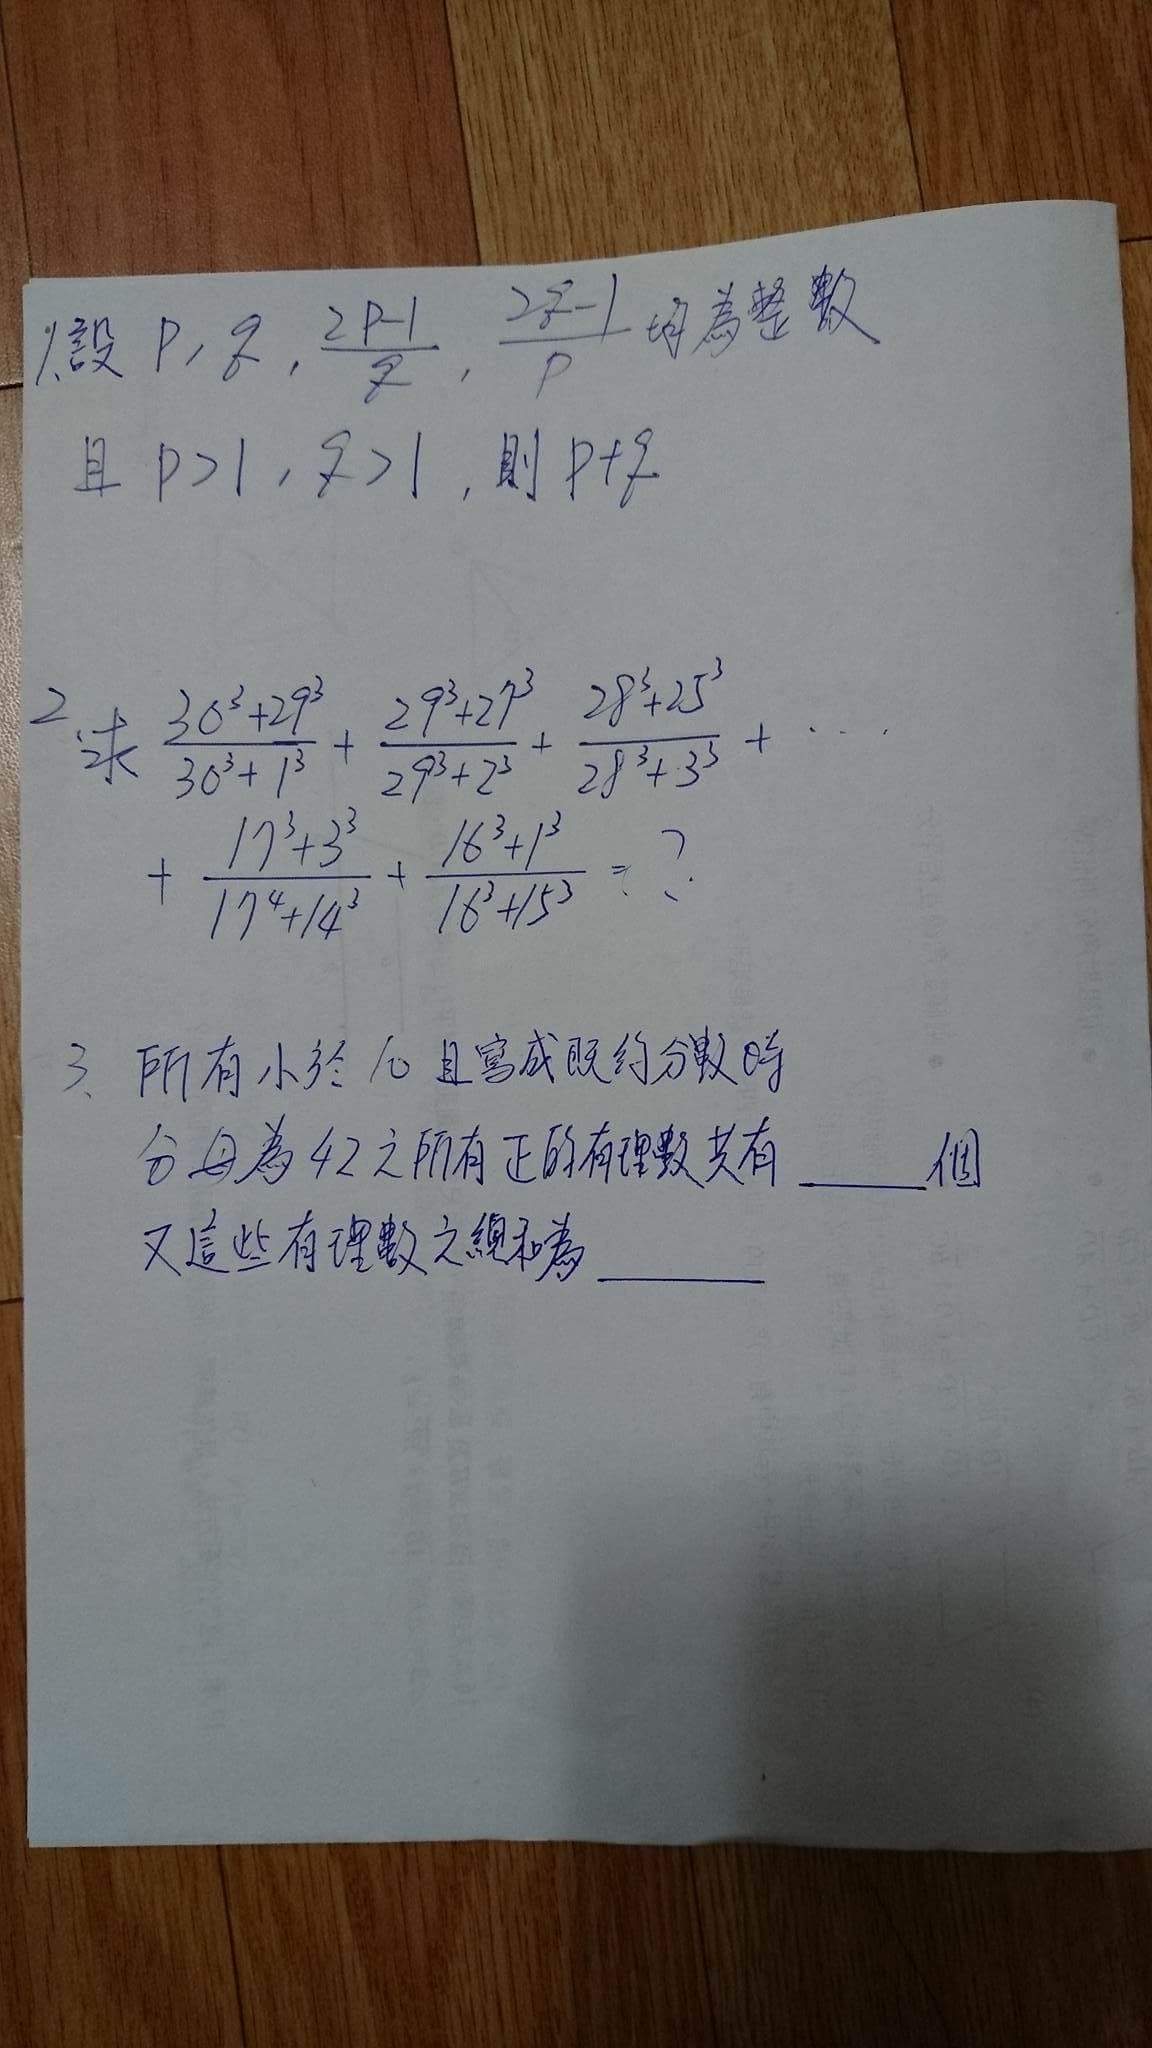 1.設 p, q, (2p-1)/q, (2q-1)/p 均為整數
且 p>1, q>1, 則 p+q
2.求 (30³+29³)/(30³+1³) + (29³+27³)/(29³+2³) + (28³+25³)/(28³+3³) + ....
+ (17³+3³)/(17⁴+14³) + (16³+1³)/(16³+15³) = ?
3、所有小於10且寫成既約分數時
分母為42之所有正的有理數共有____個
又這些有理數之總和為____